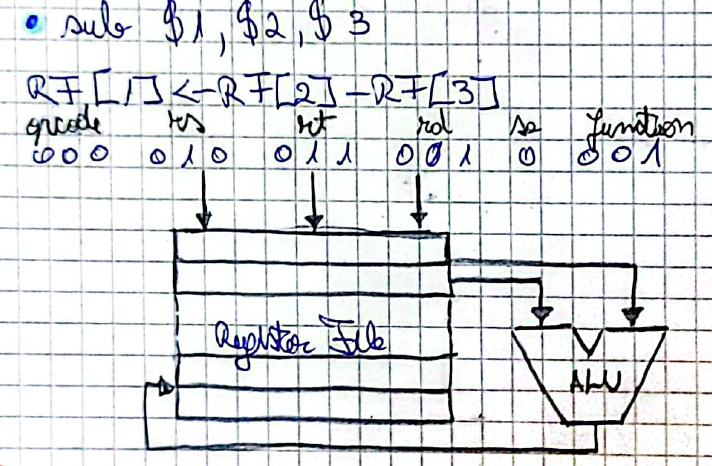 • sub $1, $2, $3
RF[1] <- RF[2] - RF[3]
opcode rs rt rd sa function
000 010 011 001 0 001
Register File
ALU